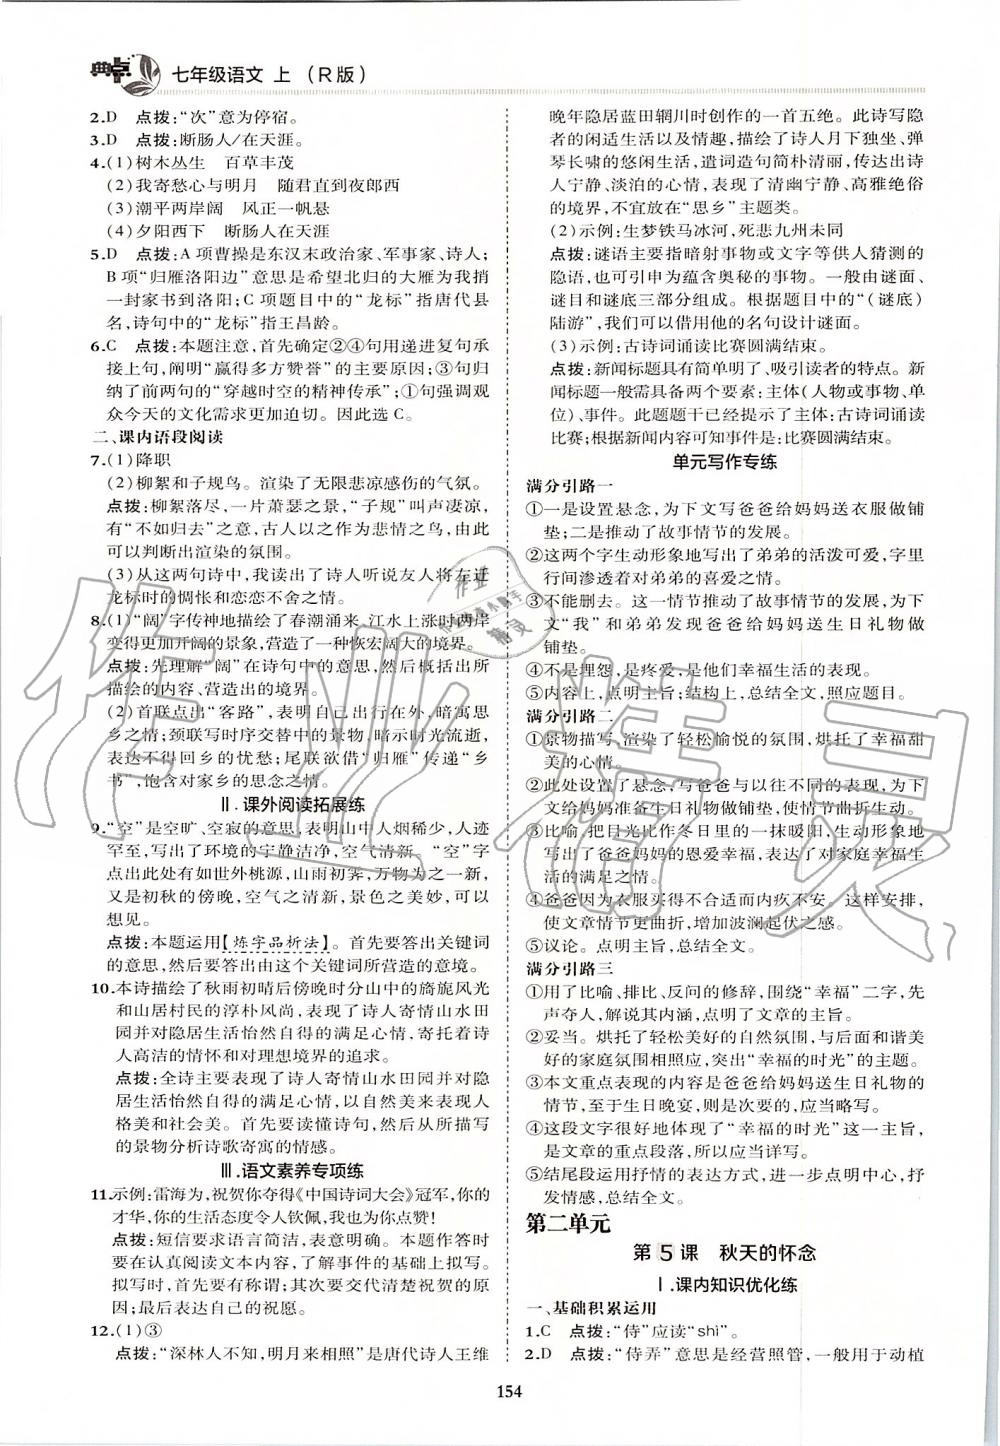 典点 七年级语文 上 (R版)
2.D 点拨:“次”意为停宿。
3.D 点拨:断肠人/在天涯。
4.(1)树木丛生 百草丰茂
(2)我寄愁心与明月 随君直到夜郎西
(3)潮平两岸阔 风正一帆悬
(4)夕阳西下 断肠人在天涯
5.D 点拨:A项曹操是东汉末政治家、军事家、诗人;
B项“归雁洛阳边”意思是希望北归的大雁为我捎
一封家书到洛阳;C项题目中的“龙标”指唐代县
名,诗句中的“龙标”指王昌龄。
6.C 点拨:本题注意,首先确定②④句用递进复句承
接上句,阐明“赢得多方赞誉”的主要原因;③句归
纳了前两句的“穿越时空的精神传承”;①句强调观
众今天的文化需求更加迫切。因此选C。
二、课内语段阅读
7.(1)降职
(2)柳絮和子规鸟。渲染了无限悲凉感伤的气氛。
点拨:柳絮落尽,一片萧瑟之景,“子规”叫声凄凉,
有“不如归去”之意,古人以之作为悲情之鸟,由此
可以判断出渲染的氛围。
(3)从这两句诗中,我读出了诗人听说好友将左迁
龙标时的惆怅和恋恋不舍之情。
8.(1)“阔”字传神地描绘了春潮涌来、江水上涨时两岸
变得更加开阔的景象,营造了一种恢宏阔大的境界。
点拨:先理解“阔”在诗句中的意思,然后概括出所
描绘的内容、营造出的境界。
(2)首联点出“客路”,表明自己出行在外,暗寓思
乡之情;颈联写时序交替中的景物,暗示时光流逝,
表达不得回乡的愁绪;尾联欲借“归雁”传递“乡
书”,饱含对家乡的思念之情。
Ⅱ.课外阅读拓展练
9.“空”是空旷、空寂的意思,表明山中人烟稀少,人迹
罕至,写出了环境的宁静洁净,空气清新。“空”字
点出此处有如世外桃源,山雨初霁,万物为之一新,
又是初秋的傍晚,空气之清新,景色之美妙,可以
想见。
点拨:本题运用【炼字品析法】。首先要答出关键词
的意思,然后要答出由这个关键词所营造的意境。
10.本诗描绘了秋雨初晴后傍晚时分山中的旖旎风光
和山居村民的淳朴风尚,表现了诗人寄情山水田
园并对隐居生活怡然自得的满足心情,寄托着诗
人高洁的情怀和对理想境界的追求。
点拨:全诗主要表现了诗人寄情山水田园并对隐
居生活怡然自得的满足心情,以自然美来表现人
格美和社会美。首先要读懂诗句,然后从所描写
的景物分析诗歌寄寓的情感。
Ⅲ.语文素养专项练
11.示例:雷海为,祝贺你夺得《中国诗词大会》冠军,你的
才华,你的生活态度令人钦佩,我也为你点赞!
点拨:短信要求语言简洁,表意明白。本题作答时
要在认真阅读文本内容、提炼信息的基础上拟写。
拟写时,首先要有称谓;其次要交代清楚祝贺的原
因;最后表达自己的祝愿。
12.(1)③
点拨:“深林人不知,明月来相照”是唐代诗人王维
晚年隐居蓝田辋川时创作的一首五绝。此诗写隐
者的闲适生活以及情趣,描绘了诗人月下独坐、弹
琴长啸的悠闲生活,遣词造句简朴清丽,传达出诗
人宁静、淡泊的心情,表现了清幽宁静、高雅绝俗
的境界,不宜放在“思乡”主题类。
(2)示例:生梦铁马冰河,死悲九州未同
点拨:谜语主要指暗射事物或文字等供人猜测的
隐语,也可引申为蕴含奥秘的事物。一般由谜面、
谜目和谜底三部分组成。根据题目中的“(谜底)
陆游”,我们可以借用他的名句设计谜面。
(3)示例:古诗词诵读比赛圆满结束。
点拨:新闻标题具有简单明了、吸引读者的特点。新
闻标题一般需具备两个要素:主体(人物或事物、单
位)、事件。此题题干已经提示了主体:古诗词诵读
比赛;根据新闻内容可知事件是:比赛圆满结束。
单元写作专练
满分引路一
①一是设置悬念,为下文写爸爸给妈妈送衣服做铺
垫;二是推动了故事情节的发展。
②这两个字生动形象地写出了弟弟的活泼可爱,字里
行间渗透着对弟弟的喜爱之情。
③不能删去。这一情节推动了故事情节的发展,为下
文“我”和弟弟发现爸爸给妈妈送生日礼物做
铺垫。
④不是埋怨,是疼爱,是他们幸福生活的表现。
⑤内容上,点明主旨;结构上,总结全文,照应题目。
满分引路二
①景物描写,渲染了轻松愉悦的氛围,烘托了幸福甜
美的心情。
②此处设置了悬念,写爸爸与以往不同的表现,为下
文给妈妈准备生日礼物做铺垫,使情节曲折生动。
③比喻,把目光比作冬日里的一抹暖阳,生动形象地
写出了爸爸妈妈的恩爱幸福,表达了对家庭幸福生
活的满足之情。
④爸爸因为衣服买得不合适而内疚不安。这样写,
使文章情节更曲折,增加波澜起伏之感。
⑤议论。点明主旨,总结全文。
满分引路三
①用了比喻、排比、反问的修辞,围绕“幸福”二字,先
声夺人,解说其内涵,点明了文章的主旨。
②妥当。烘托了轻松美好的自然氛围,与后面和谐美
好的家庭氛围相照应,突出“幸福的时光”的主题。
③本文重点表现的内容是爸爸给妈妈送生日礼物的
情节,至于生日晚宴,则是次要的,应当略写。
④这段文字很好地体现了“幸福的时光”这一主旨,
是文章的重点段落,所以应当详写。
⑤结尾段运用抒情的表达方式,进一步点明中心,抒
发情感,总结全文。
第二单元
第5课 秋天的怀念
Ⅰ.课内知识优化练
一、基础积累运用
1.C 点拨:“侍”应读“shì”。
2.D 点拨:“侍弄”意思是经营照管,一般用于动植
154
作业精灵